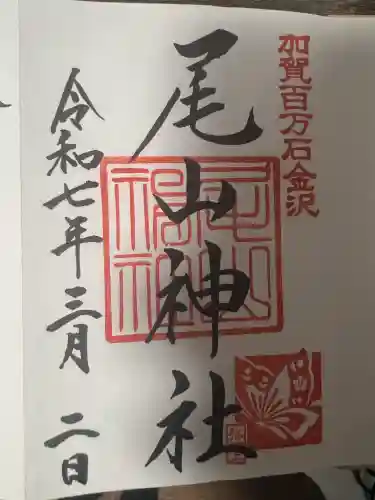 加賀百万石金沢
尾山神社
令和七年三月二日